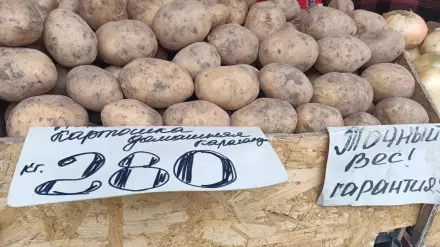 Картошка домашняя
караганд
кг. 280
Точный
вес!
гарантия!